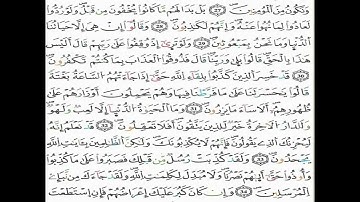 وَنَكُونَ مِنَ ٱلْمُؤْمِنِينَ ٢٧ بَلْ بَدَا لَهُم مَّا كَانُوا۟ يُخْفُونَ مِن قَبْلُ وَلَوْ رُدُّوا۟
لَعَادُوا۟ لِمَا نُهُوا۟ عَنْهُ وَإِنَّهُمْ لَكَٰذِبُونَ ٢٨ وَقَالُوٓا۟ إِنْ هِىَ إِلَّا حَيَاتُنَا
ٱلدُّنْيَا وَمَا نَحْنُ بِمَبْعُوثِينَ ٢٩ وَلَوْ تَرَىٰٓ إِذْ وُقِفُوا۟ عَلَىٰ رَبِّهِمْ قَالَ أَلَيْسَ
هَٰذَا بِٱلْحَقِّ قَالُوا۟ بَلَىٰ وَرَبِّنَا قَالَ فَذُوقُوا۟ ٱلْعَذَابَ بِمَا كُنتُمْ تَكْفُرُونَ
٣٠ قَدْ خَسِرَ ٱلَّذِينَ كَذَّبُوا۟ بِلِقَآءِ ٱللَّهِ حَتَّىٰٓ إِذَا جَآءَتْهُمُ ٱلسَّاعَةُ بَغْتَةً
قَالُوا۟ يَٰحَسْرَتَنَا عَلَىٰ مَا فَرَّطْنَا فِيهَا وَهُمْ يَحْمِلُونَ أَوْزَارَهُمْ عَلَىٰ
ظُهُورِهِمْ أَلَا سَآءَ مَا يَزِرُونَ ٣١ وَمَا ٱلْحَيَوٰةُ ٱلدُّنْيَآ إِلَّا لَعِبٌ وَلَهْوٌ
وَلَلدَّارُ ٱلْءَاخِرَةُ خَيْرٌ لِّلَّذِينَ يَتَّقُونَ أَفَلَا تَعْقِلُونَ ٣٢ قَدْ نَعْلَمُ إِنَّهُۥ
لَيَحْزُنُكَ ٱلَّذِى يَقُولُونَ فَإِنَّهُمْ لَا يُكَذِّبُونَكَ وَلَٰكِنَّ ٱلظَّٰلِمِينَ بِـَٔايَٰتِ ٱللَّهِ
يَجْحَدُونَ ٣٣ وَلَقَدْ كُذِّبَتْ رُسُلٌ مِّن قَبْلِكَ فَصَبَرُوا۟ عَلَىٰ مَا كُذِّبُوا۟
وَأُوذُوا۟ حَتَّىٰٓ أَتَىٰهُمْ نَصْرُنَا وَلَا مُبَدِّلَ لِكَلِمَٰتِ ٱللَّهِ وَلَقَدْ جَآءَكَ مِن نَّبَإِى۟
ٱلْمُرْسَلِينَ ٣٤ وَإِن كَانَ كَبُرَ عَلَيْكَ إِعْرَاضُهُمْ فَإِنِ ٱسْتَطَعْتَ